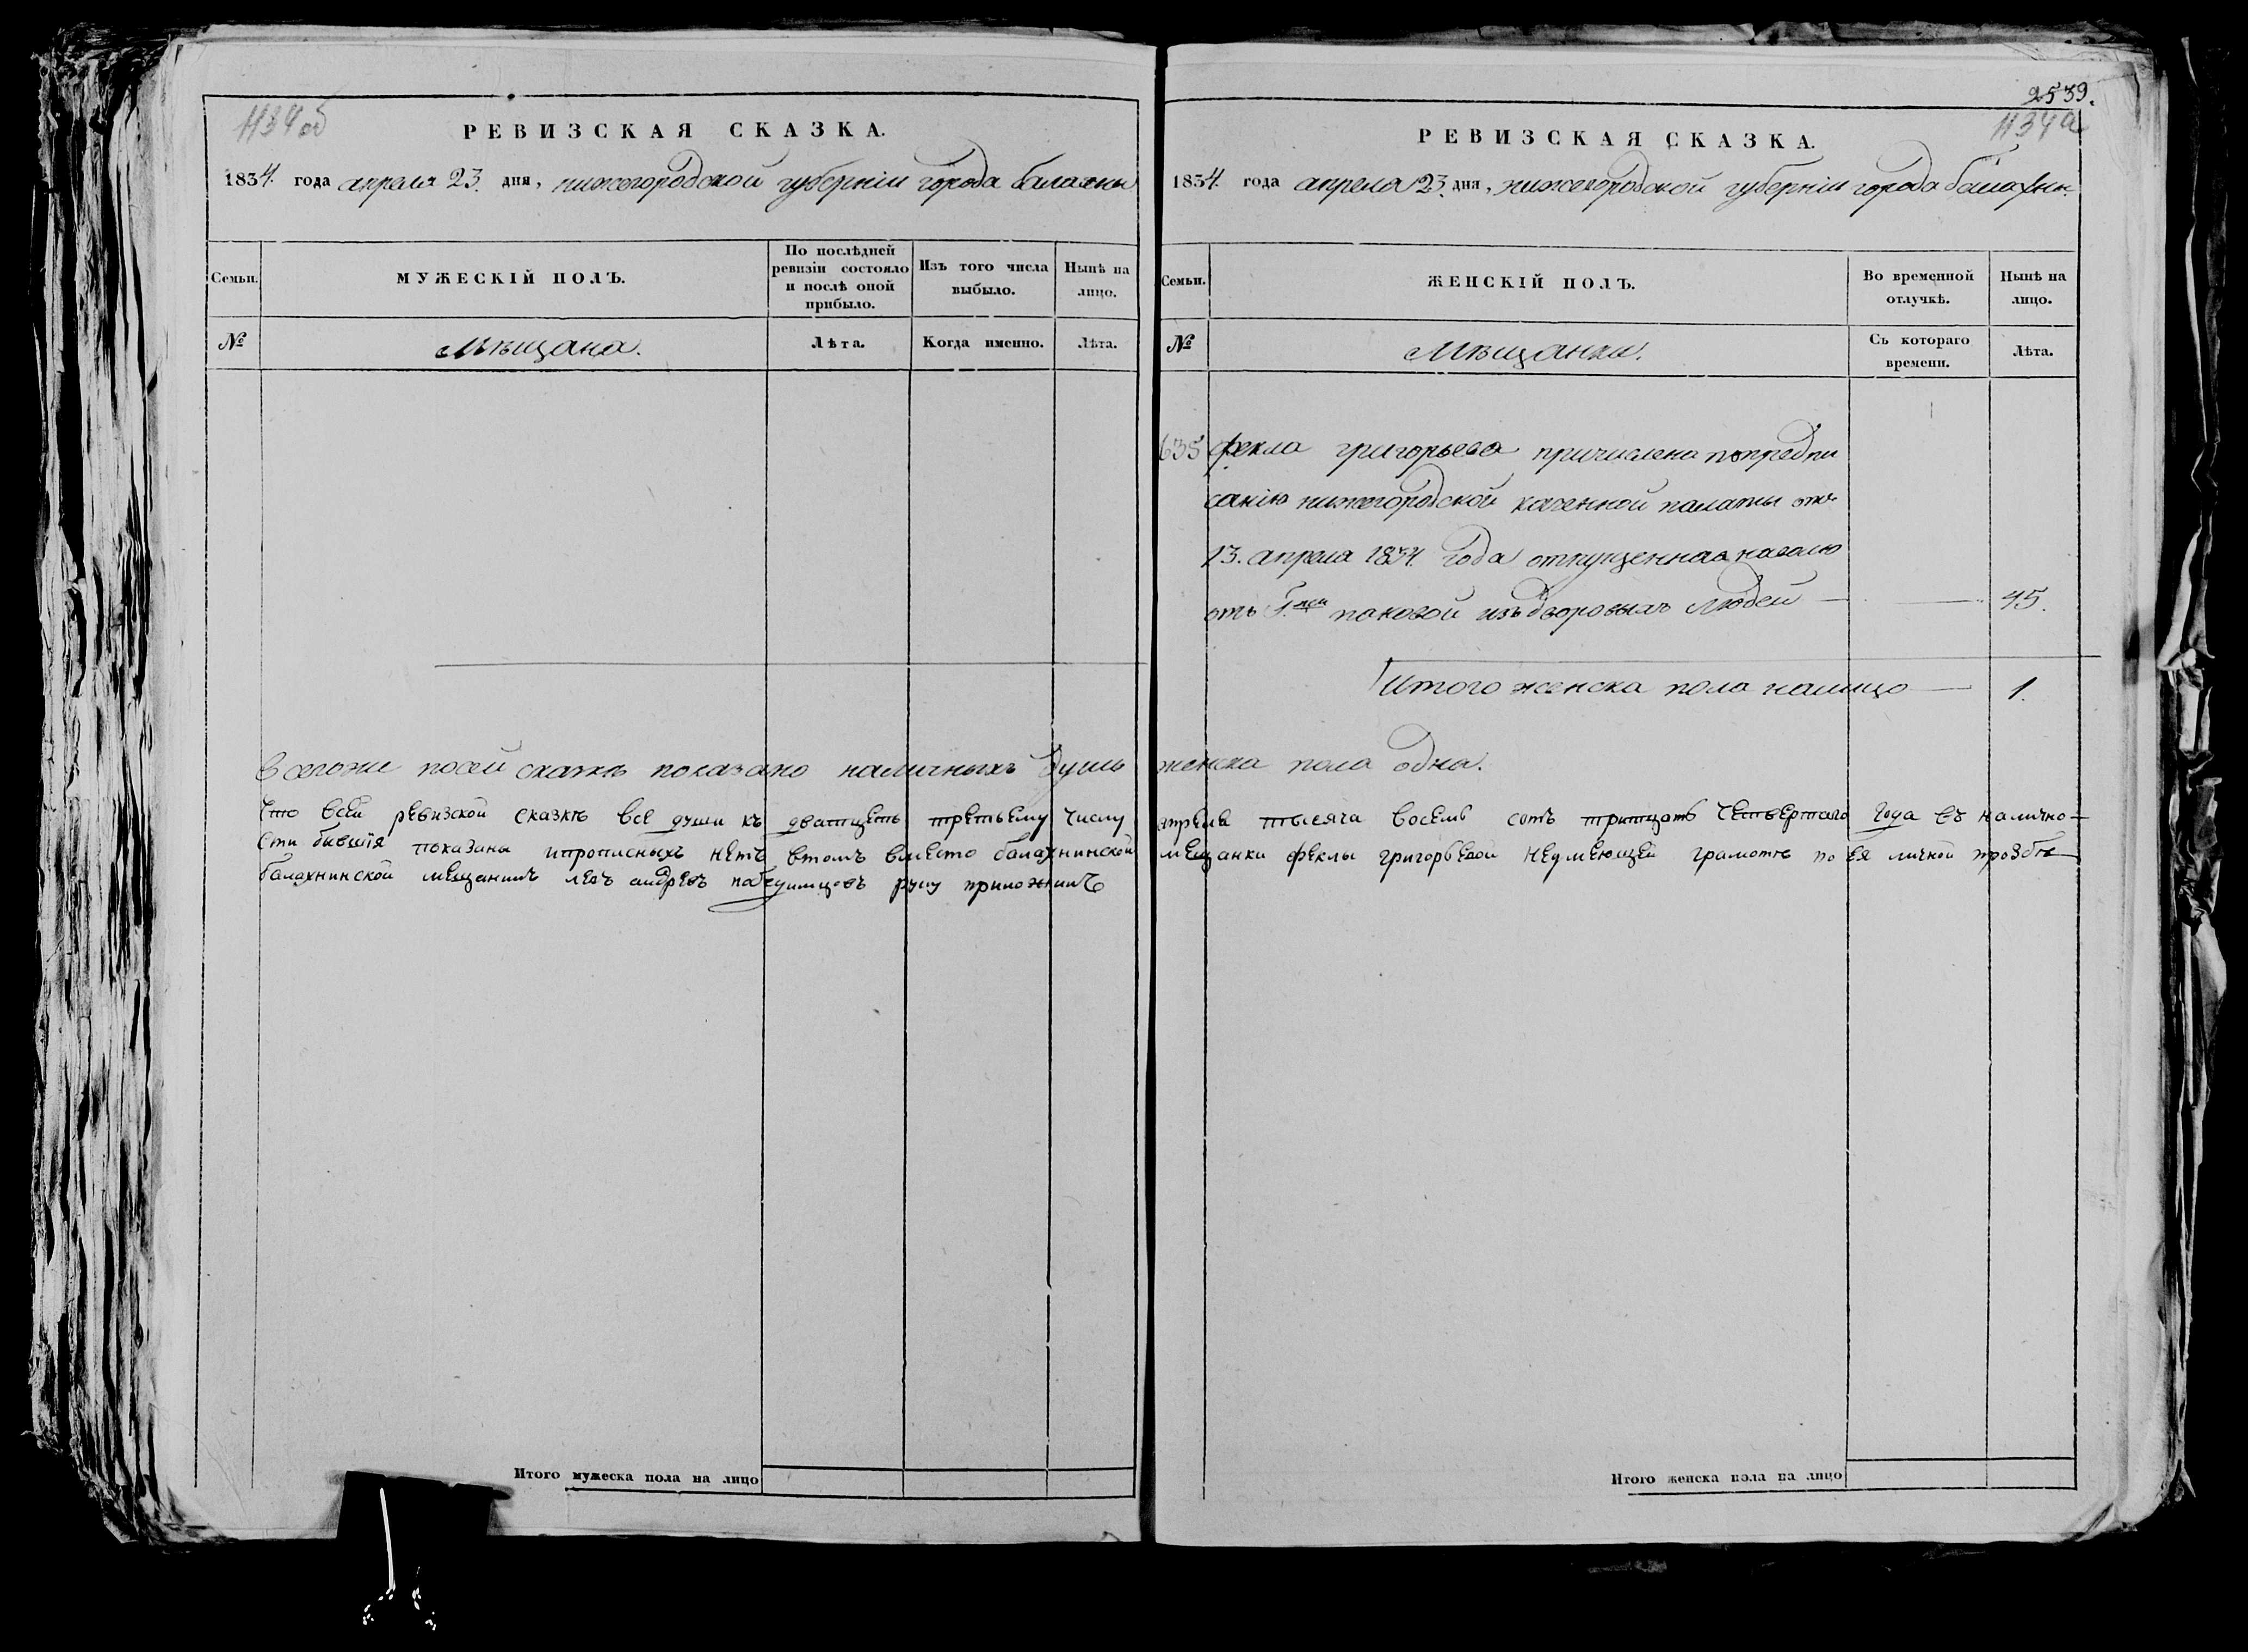 1134 об
РЕВИЗСКАЯ СКАЗКА.
1834. года апреля 23. дня, нижегородской губерніи города балахны
Семьи.
МУЖЕСКІЙ ПОЛЪ.
По послѣдней
ревизіи состояло
и послѣ оной
прибыло.
Изъ того числа
выбыло.
Нынѣ на
лицо.
№
Мѣщана.
Лѣта.
Когда именно.
Лѣта.
2539.
1134а
РЕВИЗСКАЯ СКАЗКА.
1834. года апреля 23. дня, нижегородской губерніи города балахны.
Семьи.
ЖЕНСКІЙ ПОЛЪ.
Во временной
отлучкѣ.
Нынѣ на
лицо.
№
Мѣщанки.
Съ котораго
времени.
Лѣта.
635 фекла григорьева причислена попредпи
санію нижегородской казенной палаты отъ
13. апреля 1834. года отпущенная наволю
отъ пановой изъ дворовыхъ людей 45.
Итого женска пола налицо 1.
Всегоже посей сказкѣ показано наличныхъ душъ женска пола одна.
Что всей ревизской сказкѣ все души къ дватцеть третьему числу апреля тысяча восемь сотъ тритцать четвертаго года въ налично-
сти бывшія показаны ипрописныхъ нетъ втомъ вместо балахнинской мещанки феклы григорьевой неумеющей грамотѣ по ея личной прозбѣ
балахнинской мещанинъ андреевъ руку приложилъ
Итого мужеска пола на лицо
Итого женска пола на лицо